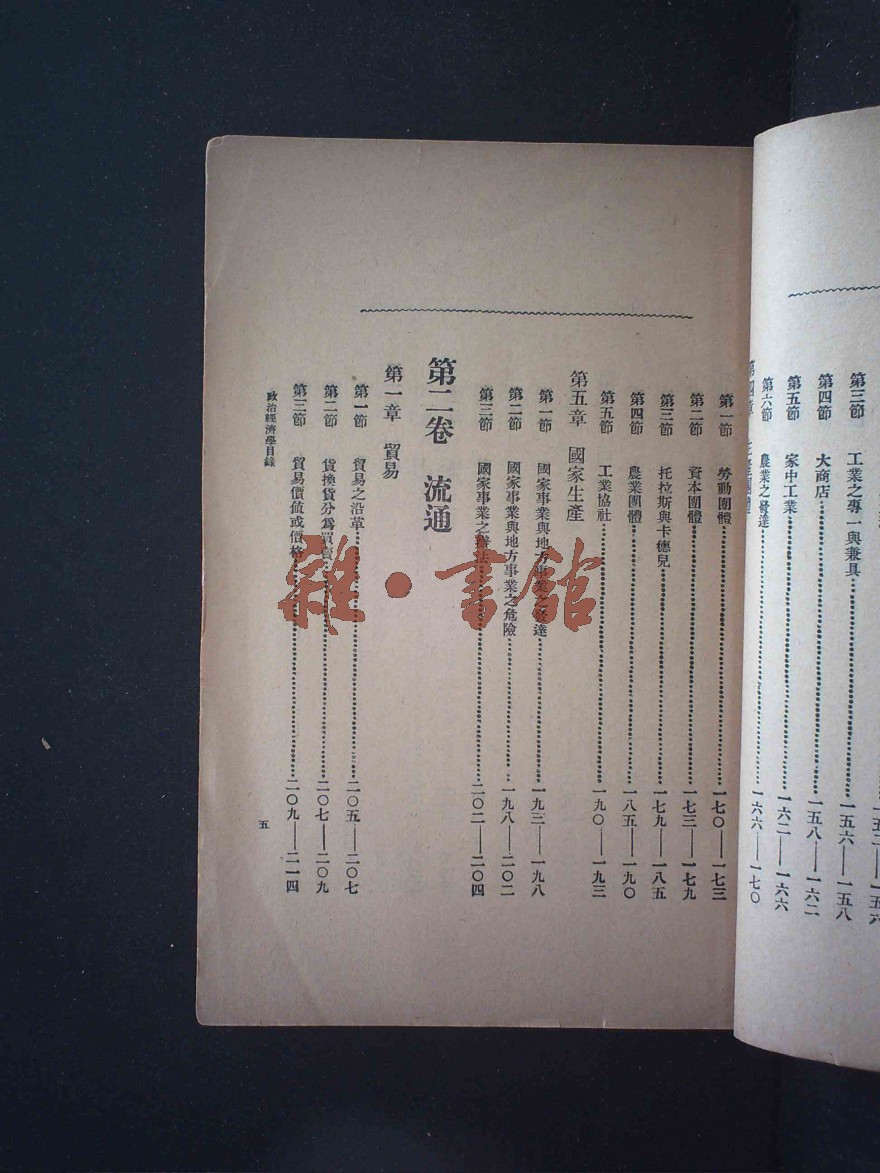 一五二——一五六
第三節　工業之專一與兼具……一五六——一五八
第四節　大商店……一五八——一六二
第五節　家中工業……一六二——一六六
第六節　農業之發達……一六六——一七〇
第四章
第一節　勞動團體……一七〇——一七三
第二節　資本團體……一七三——一七九
第三節　托拉斯與卡德兒……一七九——一八五
第四節　農業團體……一八五——一九〇
第五節　工業協社……一九〇——一九三
第五章　國家生產
第一節　國家事業與地方事業之發達……一九三——一九八
第二節　國家事業與地方事業之危險……一九八——二〇二
第三節　國家事業之辦法……二〇二——二〇四
第二卷　流通
第一章　貿易
第一節　貿易之沿革……二〇五——二〇七
第二節　貨換貨分爲買賣……二〇七——二〇九
第三節　貿易價値或價格……二〇九——二一四
政治經濟學目錄
五
雜·書館